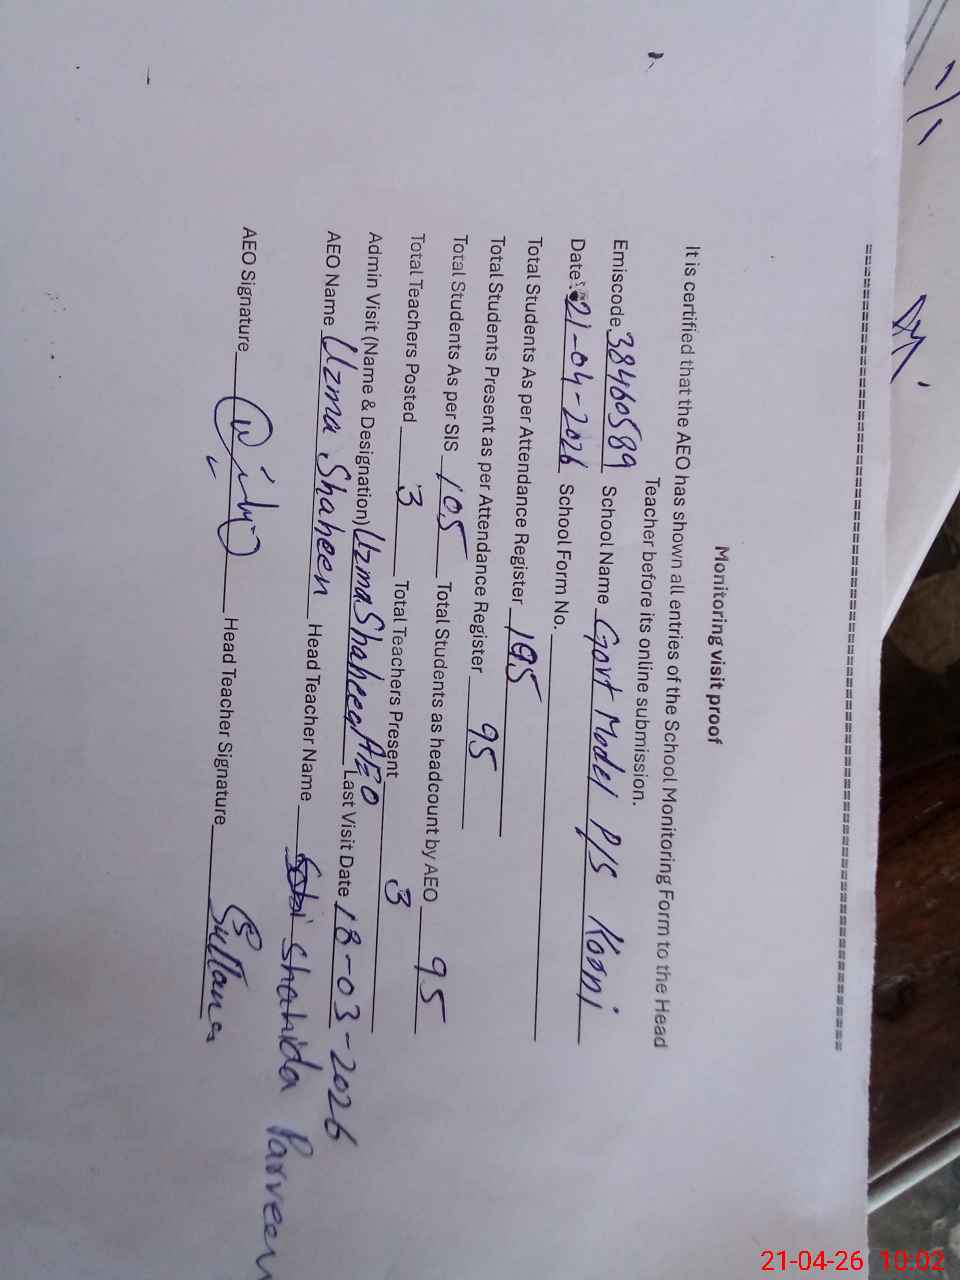 ================================================================
Monitoring visit proof
It is certified that the AEO has shown all entries of the School Monitoring Form to the Head
Teacher before its online submission.
Emiscode 38460589 School Name Govt Model P/S Konni
Date: 21-04-2026 School Form No.
Total Students As per Attendance Register 105
Total Students Present as per Attendance Register 95
Total Students As per SIS 105 Total Students as headcount by AEO 95
Total Teachers Posted 3 Total Teachers Present 3
Admin Visit (Name & Designation) Uzma Shaheen AEO Last Visit Date 18-03-2026
AEO Name Uzma Shaheen Head Teacher Name Shahida Parveen
AEO Signature Head Teacher Signature Sultana
21-04-26 10:02